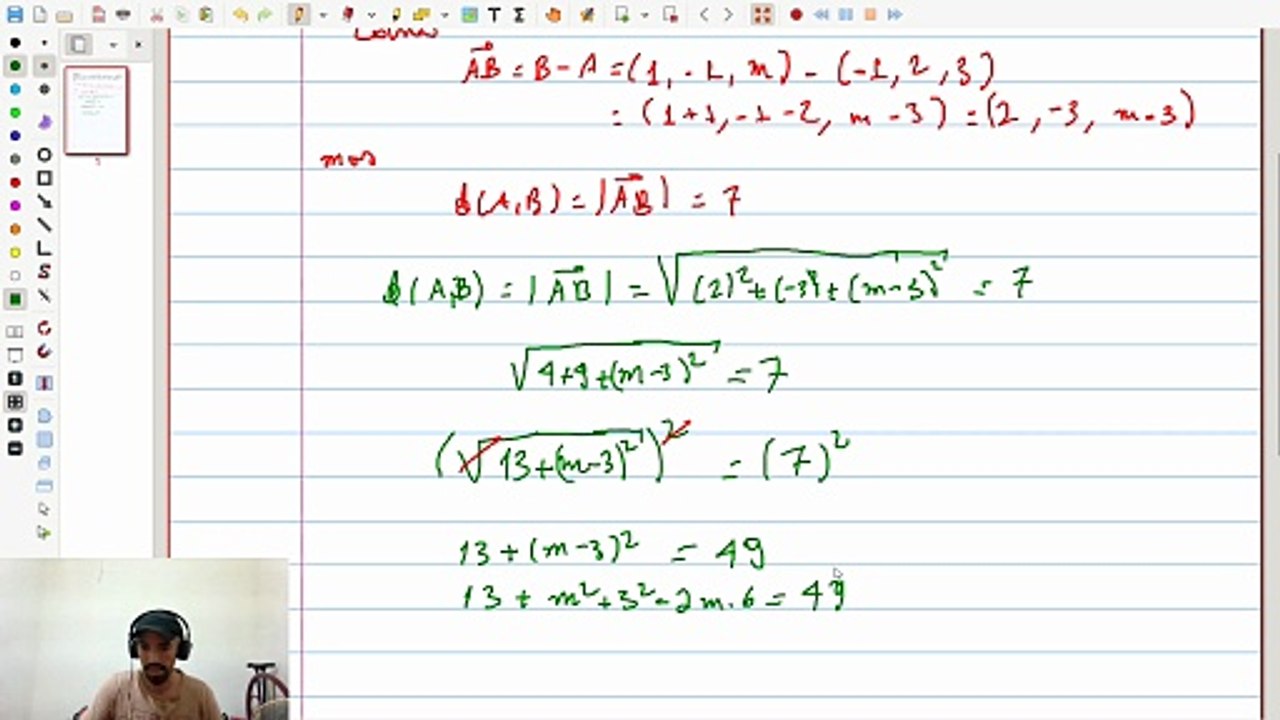 AB = B - A = (1, -1, m) - (-1, 2, 3)
= (1+1, -1-2, m-3) = (2, -3, m-3)
mas
d(A,B) = |AB| = 7
d(A,B) = |AB| = √((2)²+(-3)²+(m-3)²) = 7
√(4+9+(m-3)²) = 7
(√(13+(m-3)²))² = (7)²
13+(m-3)² = 49
13+m²+3²-2m.6 = 49